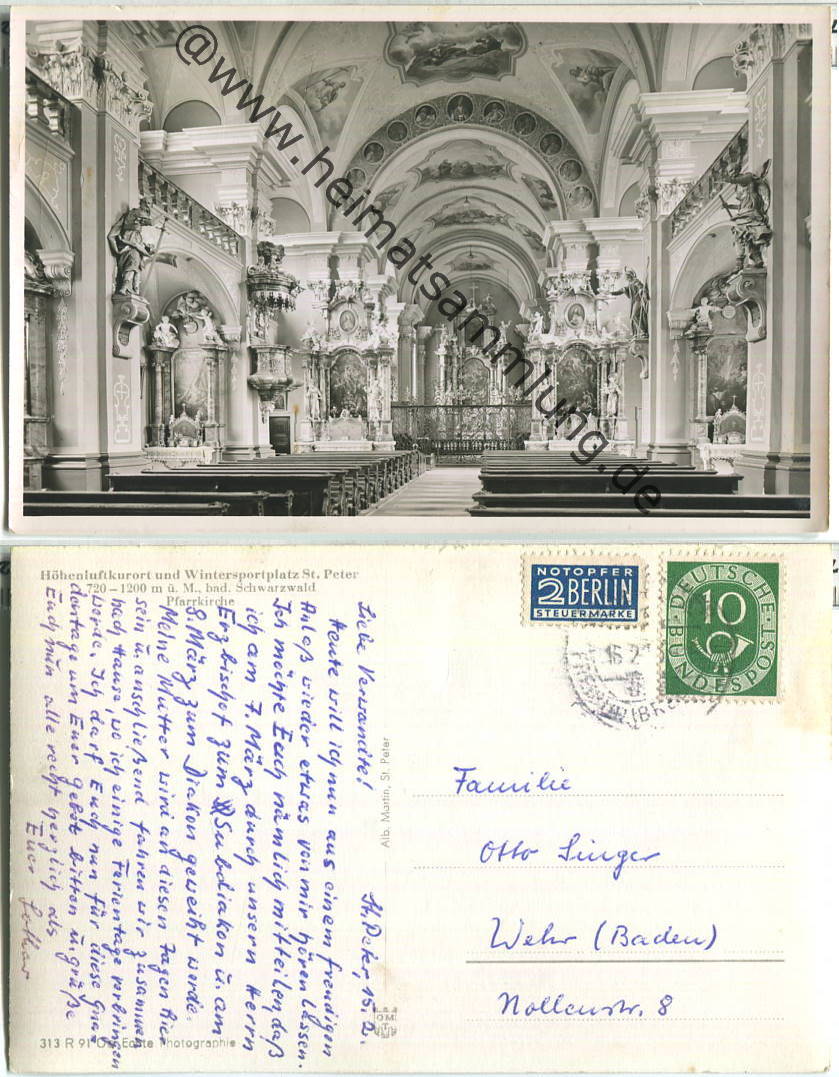 @www.heimatsammlung.de
Höhenluftkurort und Wintersportplatz St. Peter
720 – 1200 m ü. M., bad. Schwarzwald
Pfarrkirche
NOTOPFER
2 BERLIN
STEUERMARKE
DEUTSCHE
10
BUNDESPOST
St. Peter, 15.2.
Liebe Verwandte!
Heute will ich nun aus einem freudigen
Anlaß wieder etwas von mir hören lassen.
Ich möchte Euch nämlich mitteilen, daß
ich am 7. März durch unsern Herrn
Erzbischof zum Subdiakon u. am
8. März zum Diakon geweiht werde.
Meine Mutter wird an diesen Tagen hier
sein u. anschließend fahren wir zusammen
nach Hause, wo ich einige Ferientage verbringen
werde. Ich darf Euch nun für diese Gna-
dentage um Euer Gebet bitten u. grüße
Euch nun alle recht herzlich als
Euer Lothar
Alb. Martin, St. Peter
Familie
Otto Singer
Wehr (Baden)
Nollenstr. 8
313 R 91 Echte Photographie